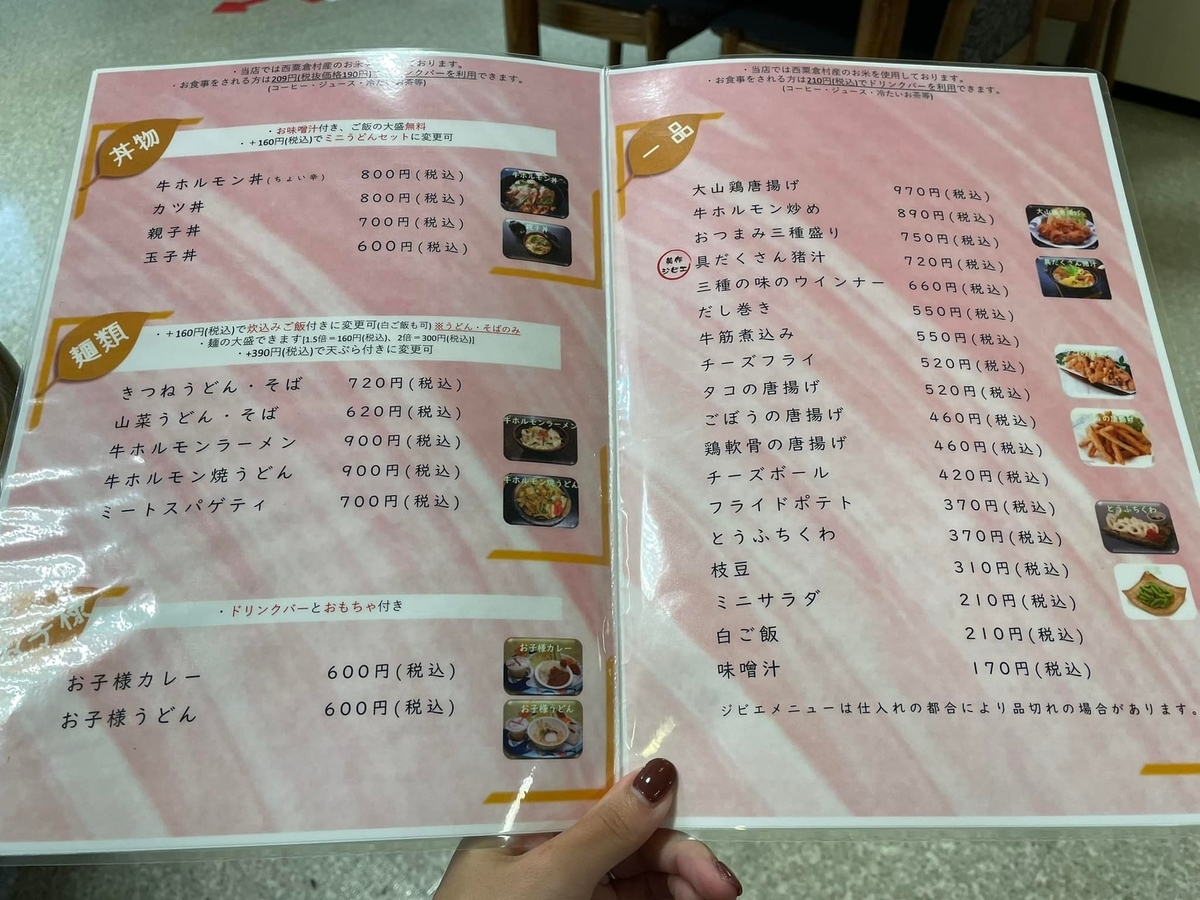 ・当店では西粟倉村産のお米を
ております。
・お食事をされる方は209円(税抜価格190円)で
ンクバーを利用できます。
(コーヒー・ジュース・冷たいお茶等)
丼物
・お味噌汁付き、ご飯の大盛無料
・+160円(税込)でミニうどんセットに変更可
牛ホルモン丼(ちょい辛) 800円(税込)
カツ丼 800円(税込)
親子丼 700円(税込)
玉子丼 600円(税込)
牛ホルモン丼
親子丼
麺類
・+160円(税込)で炊込みご飯付きに変更可(白ご飯も可) ※うどん・そばのみ
・麺の大盛できます[1.5倍=160円(税込)、2倍=300円(税込)]
・+390円(税込)で天ぷら付きに変更可
きつねうどん・そば 720円(税込)
山菜うどん・そば 620円(税込)
牛ホルモンラーメン 900円(税込)
牛ホルモン焼うどん 900円(税込)
ミートスパゲティ 700円(税込)
牛ホルモンラーメン
牛ホルモン焼うどん
子様
・ドリンクバーとおもちゃ付き
お子様カレー 600円(税込)
お子様うどん 600円(税込)
お子様カレー
お子様うどん
・当店では西粟倉村産のお米を使用しております。
・お食事をされる方は210円(税込)でドリンクバーを利用できます。
(コーヒー・ジュース・冷たいお茶等)
一品
大山鶏唐揚げ 970円(税込)
牛ホルモン炒め 890円(税込)
おつまみ三種盛り 750円(税込)
美作ジビエ
具だくさん猪汁 720円(税込)
三種の味のウインナー 660円(税込)
だし巻き 550円(税込)
牛筋煮込み 550円(税込)
チーズフライ 520円(税込)
タコの唐揚げ 520円(税込)
ごぼうの唐揚げ 460円(税込)
鶏軟骨の唐揚げ 460円(税込)
チーズボール 420円(税込)
フライドポテト 370円(税込)
とうふちくわ 370円(税込)
枝豆 310円(税込)
ミニサラダ 210円(税込)
白ご飯 210円(税込)
味噌汁 170円(税込)
大山鶏唐揚げ
具だくさん猪汁
とうふちくわ
ジビエメニューは仕入れの都合により品切れの場合があります。